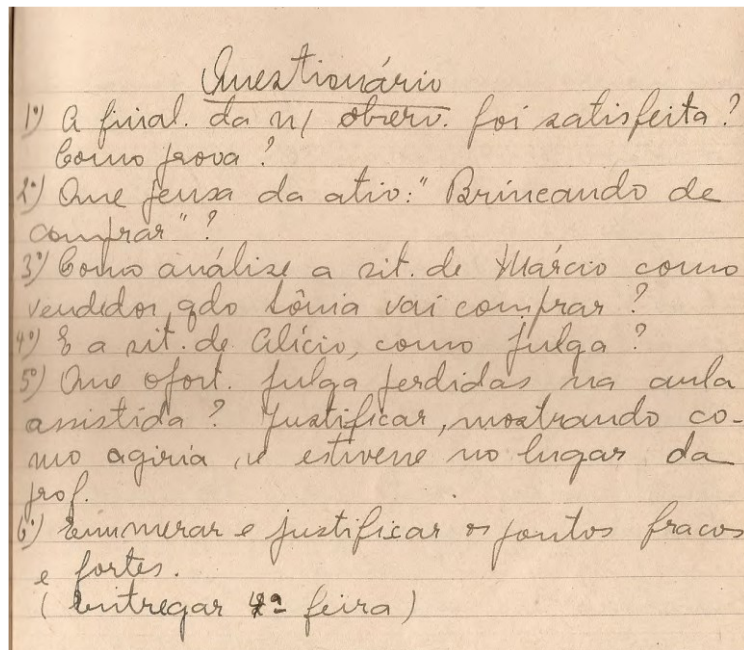 Questionário
1º) A final. da n/ observ. foi satisfeita?
Como prova?
2º) Que pensa da ativ: "Brincando de
comprar"?
3º) Como análise a sit. de Márcio como
vendedor, qdo Sônia vai comprar?
4º) E a sit. de Alício, como julga?
5º) Que oport. julga perdidas na aula
assistida? Justificar, mostrando co-
mo agiria, se estivesse no lugar da
prof.
6º) Enumerar e justificar os pontos fracos
e fortes.
(Entregar 4ª feira)